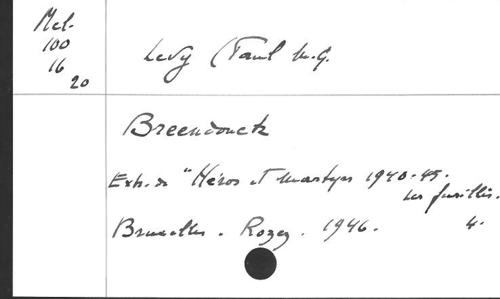 Mel.
100
16
20
Levy (Paul M.G.
Breendonck
Extr. de "Héros et Martyrs 1940-45.
les fusillés.
Bruxelles. Rozez. 1946. 4.